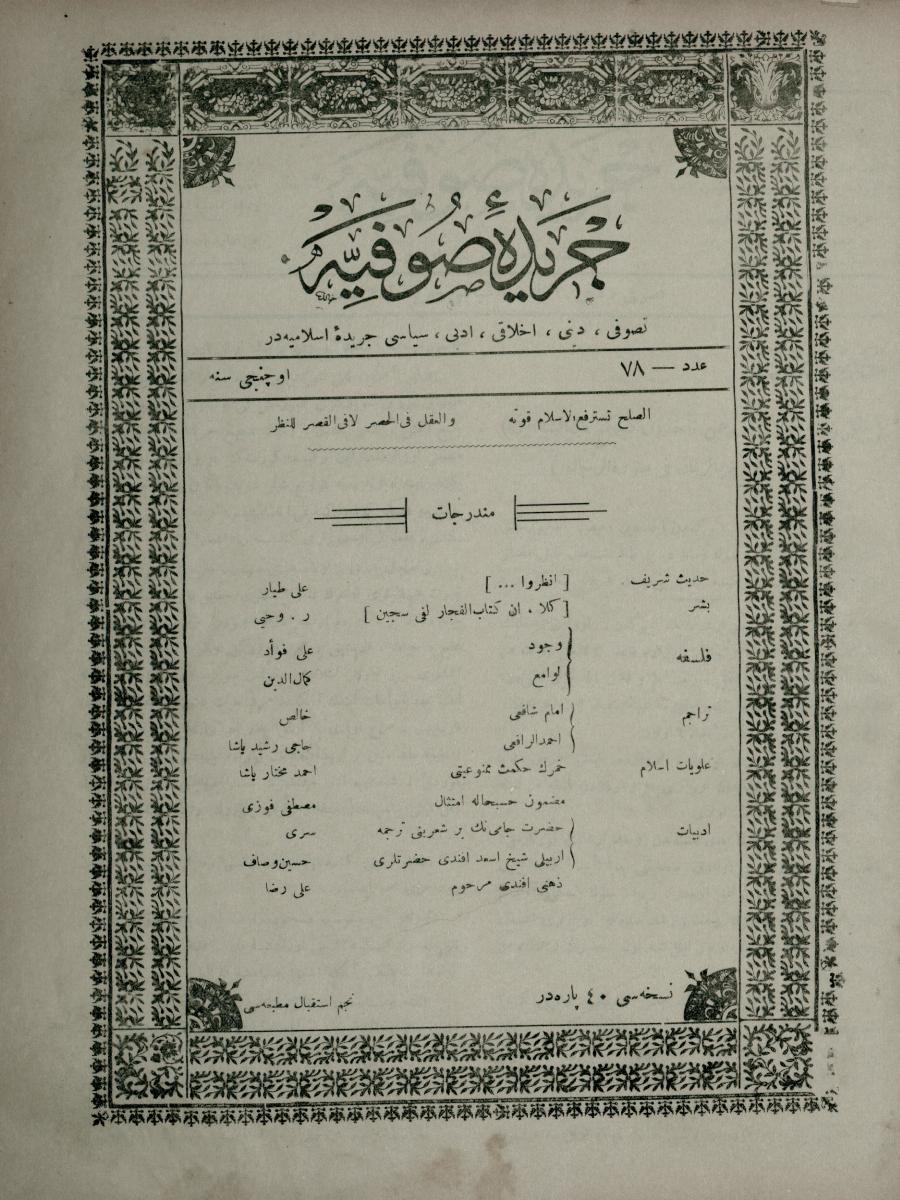 جريدۀ صوفيه
تصوفى ، دينى ، اخلاقى ، ادبى ، سياسى جريدۀ اسلاميه در
عدد — ٧٨ اوچنجى سنه
الصلح تسترفع الاسلام قوته والعقل فى الحصر لا فى القصر للنظر
مندرجات
حديث شريف [ انظروا ... ] على طيار
بشر [ كلا ، ان كتاب الفجار لفى سجين ] ر . وحيى
فلسفه
وجود على فوأد
لوامع كمال الدين
تراجم
امام شافعى خالص
احمد الرافعى حاجى رشيد پاشا
علويات اسلام خمرك حكمت ممنوعيتى احمد مختار پاشا
مضمون حسبحاله امتثال مصطفى فوزى
ادبيات
حضرت جامى نك بر شعرينى ترجمه سرى
اربيلى شيخ اسعد افندى حضرتلرى حسين وصاف
ذهنى افندى مرحوم على رضا
نسخه سى ٤٠ پاره در نجم استقبال مطبعه سى